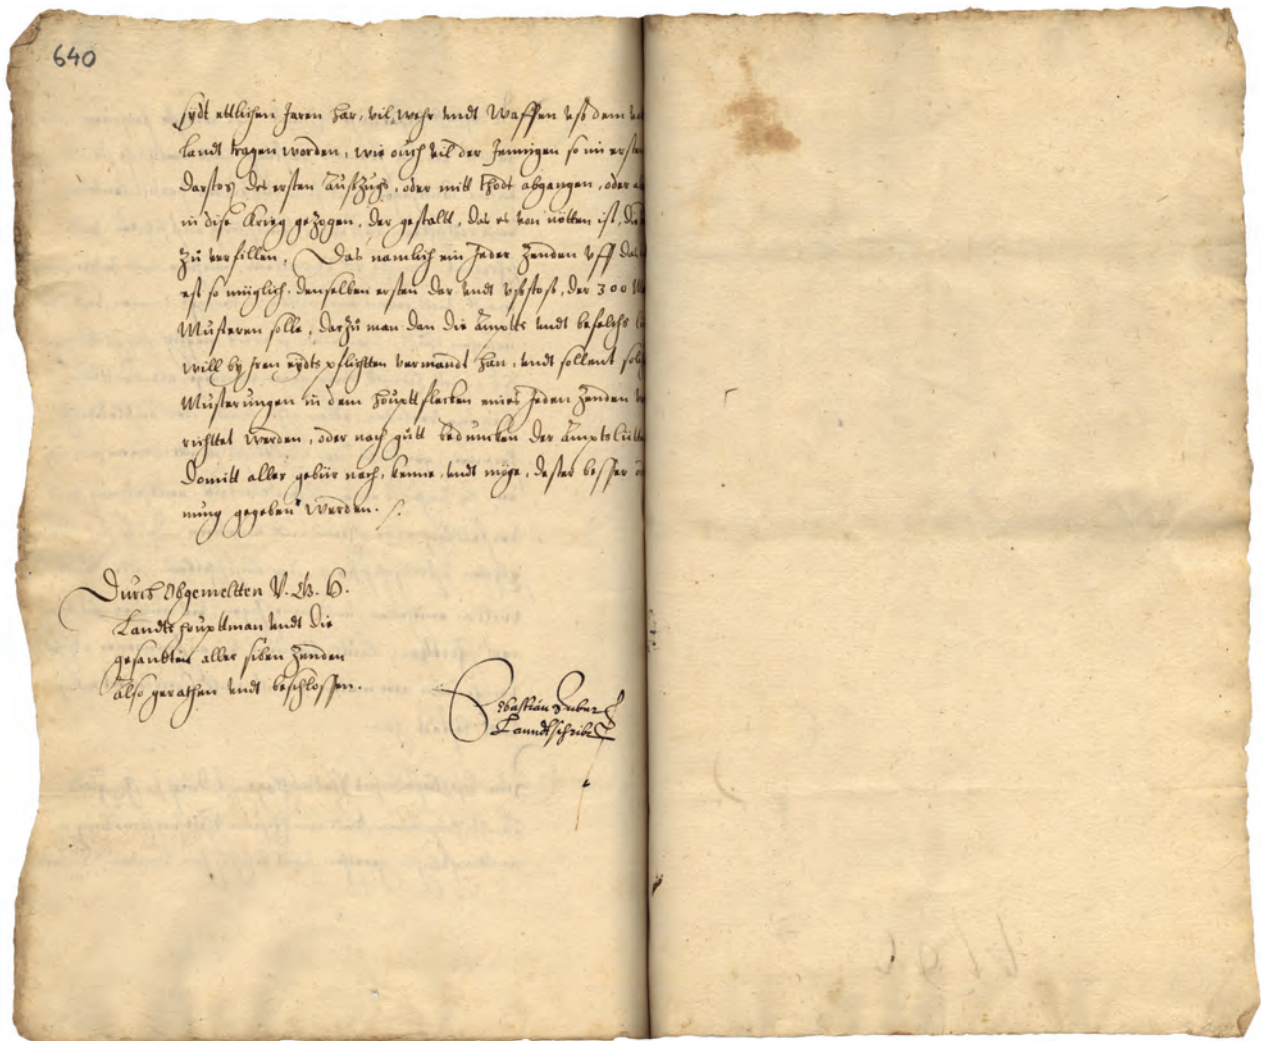 640
sydt ettlichen Jaren har, vil wehr undt Waffen uß dem
landt tragen worden, wie ouch vil der Jennigen so im ersten
darstoß des ersten Aufzugs, oder mitt thodt abgangen, oder
in dise krieg gezogen, der gestaltt, das es von nötten ist, die
zu verfillen, Das namlich ein Jeder Zenden uff das
est so müglich denselben ersten dar undt ußstoß, der 300
Musteren solle, darzu man dan die Ampts undt befelchs
will by Jren eydts pflichtten vermandt han, undt sollent
Musterungen in dem houptt flecken eines Jeden Zenden
richttet werden, oder nach gutt beduncken der Amptslütten
Domitt aller gebür nach, kenne undt möge, dester besser
nung gegeben werden. /.
Durch Obgemeltten V. G. H.
Landtshouptman undt die
gesandten aller siben Zenden
also gerathen undt beschlossen.
Sebastian Zuber
Lanndtschriber